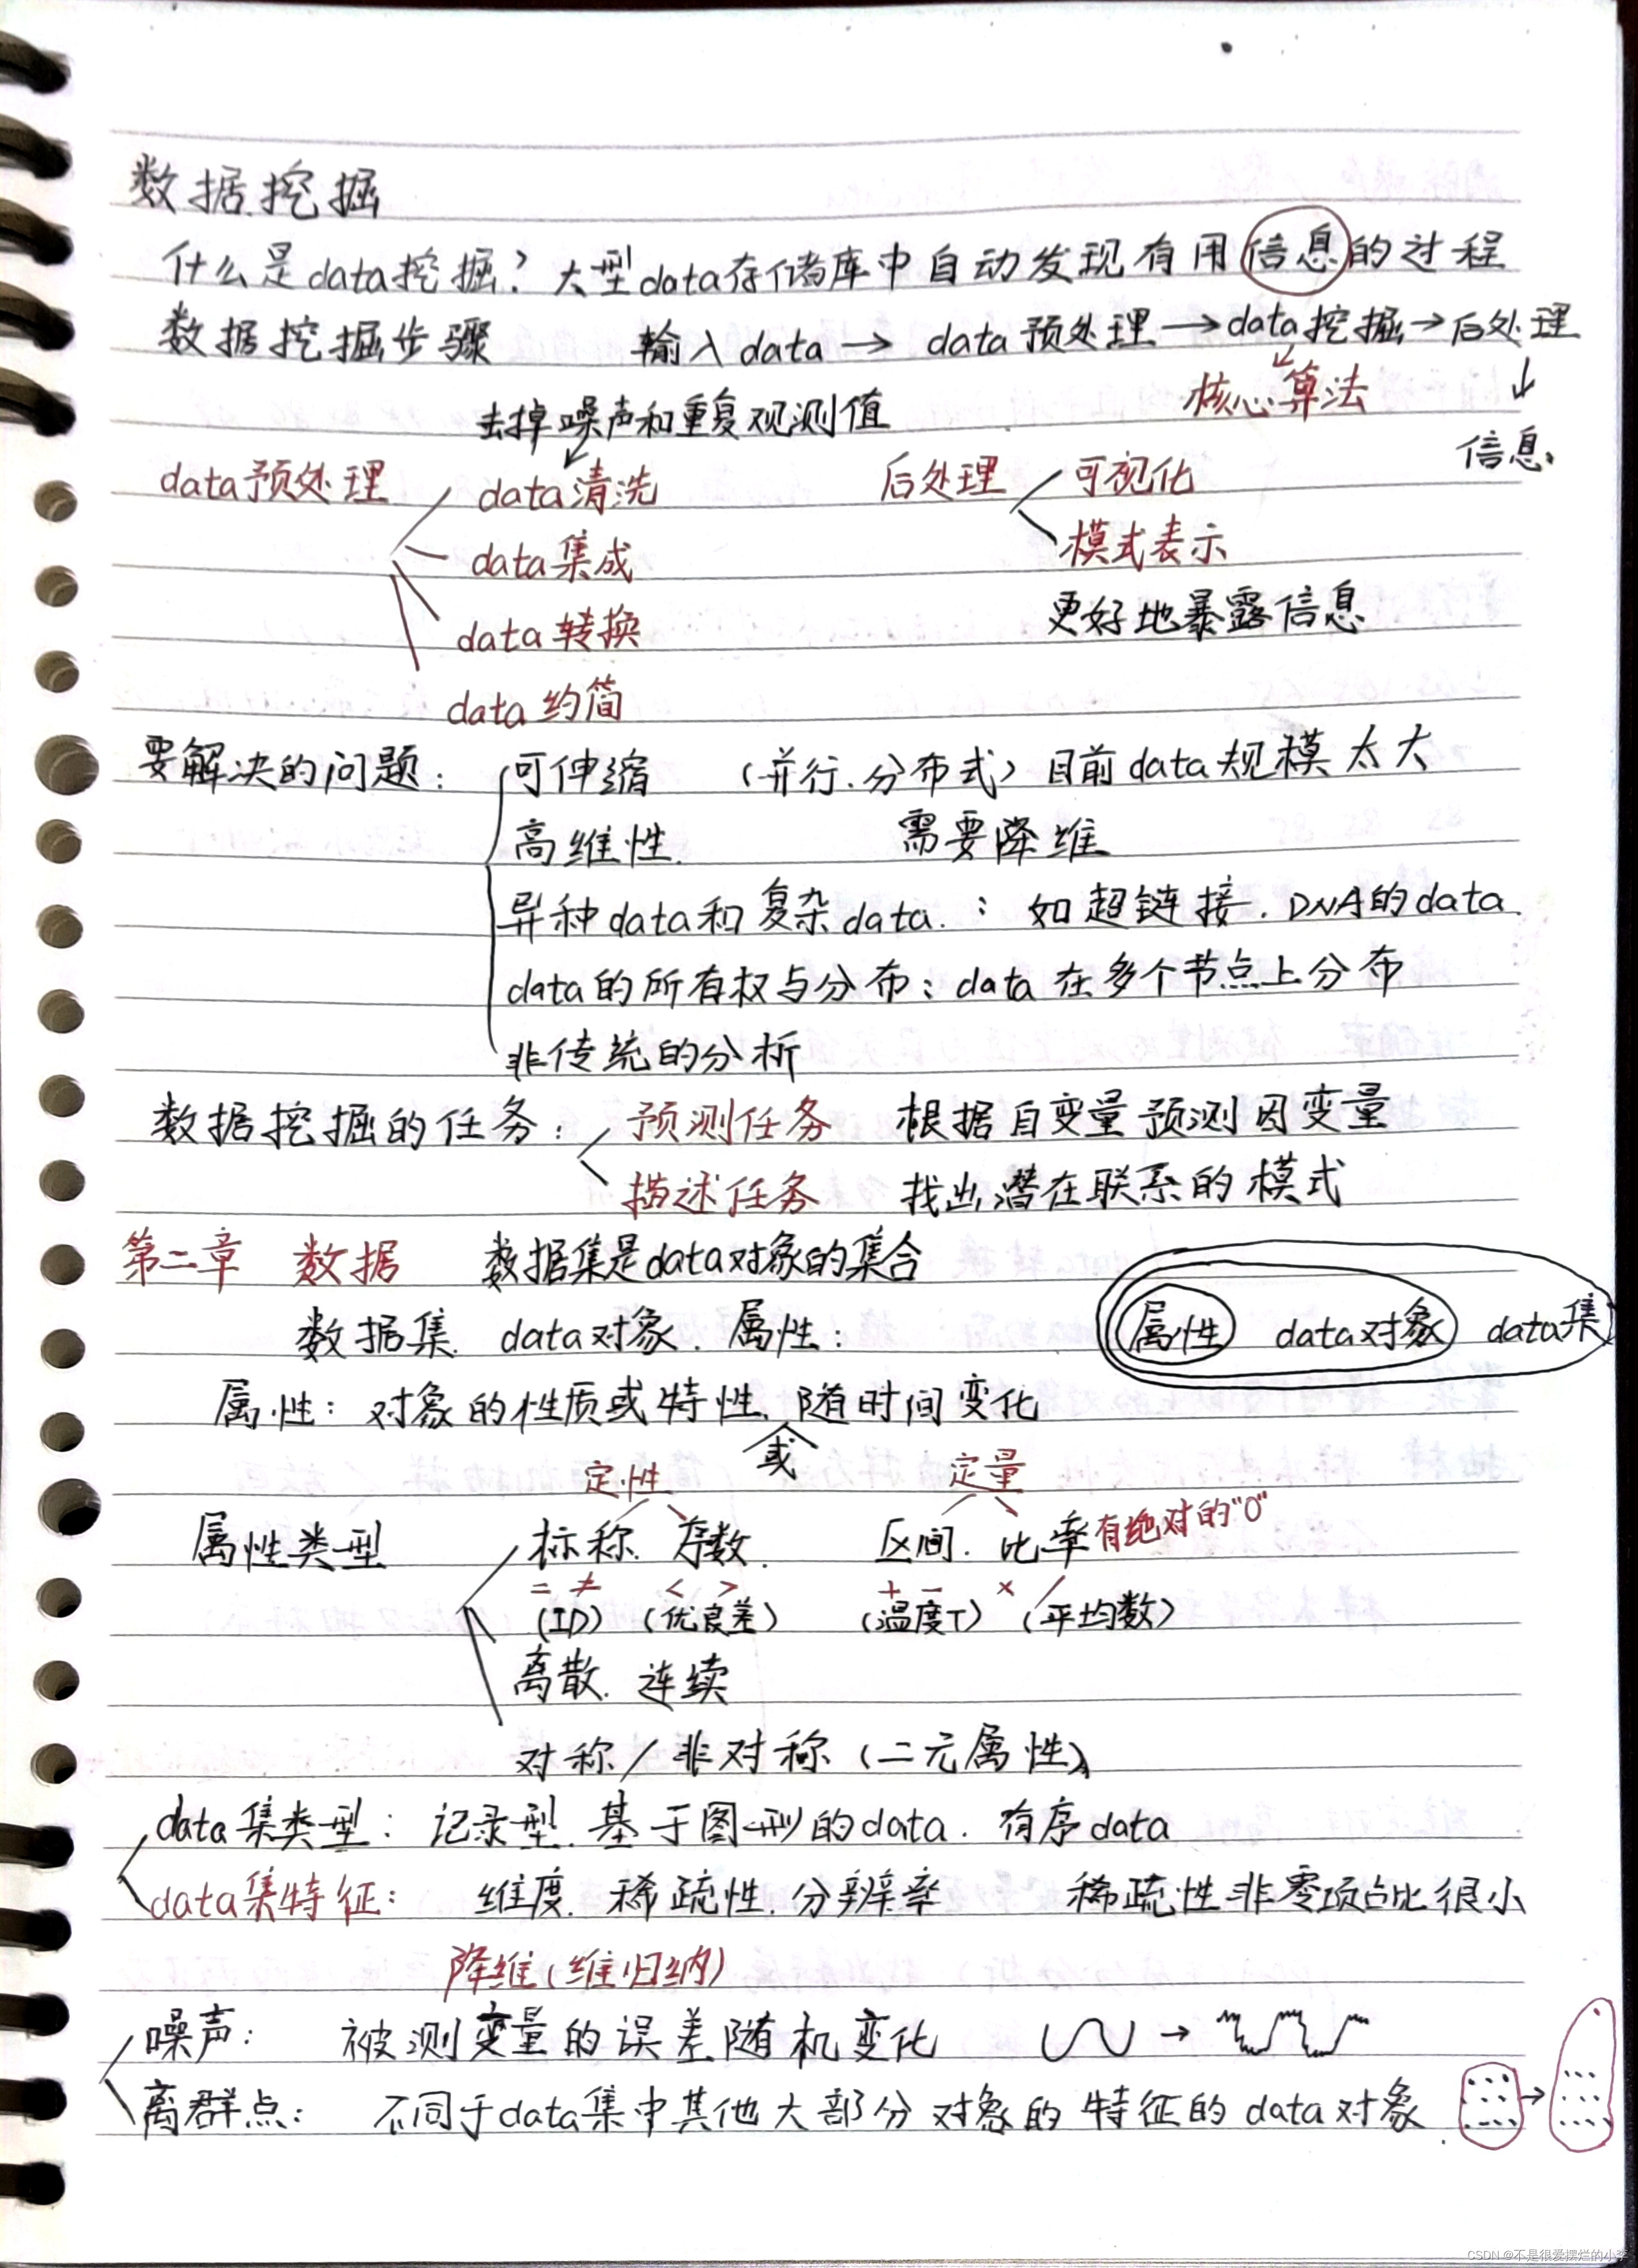 数据挖掘
什么是data挖掘？大型data存储库中自动发现有用信息的过程
数据挖掘步骤 输入data → data预处理 → data挖掘 → 后处理
核心算法 ↓
去掉噪声和重复观测值
信息.
data预处理 data清洗 后处理 可视化
data集成 模式表示
data转换 更好地暴露信息
data约简
要解决的问题： 可伸缩 （并行.分布式）目前data规模太大
高维性. 需要降维
异种data和复杂data.：如超链接.DNA的data.
data的所有权与分布：data在多个节点上分布
非传统的分析
数据挖掘的任务： 预测任务 根据自变量预测因变量
描述任务 找出潜在联系的模式
第二章 数据 数据集是data对象的集合
数据集. data对象. 属性： 属性 data对象 data集
属性：对象的性质或特性.随时间变化
或
定性 定量
属性类型 标称. 序数. 区间. 比率 有绝对的"0"
= ≠ < > + - × /
(ID) (优良差) (温度T) (平均数)
离散. 连续
对称/非对称（二元属性）
data集类型：记录型.基于图形的data.有序data
data集特征： 维度.稀疏性.分辨率 稀疏性非零项占比很小
降维(维归纳)
噪声： 被测变量的误差随机变化 →
离群点： 不同于data集中其他大部分对象的特征的data对象. →
CSDN @不是很爱摆烂的小李